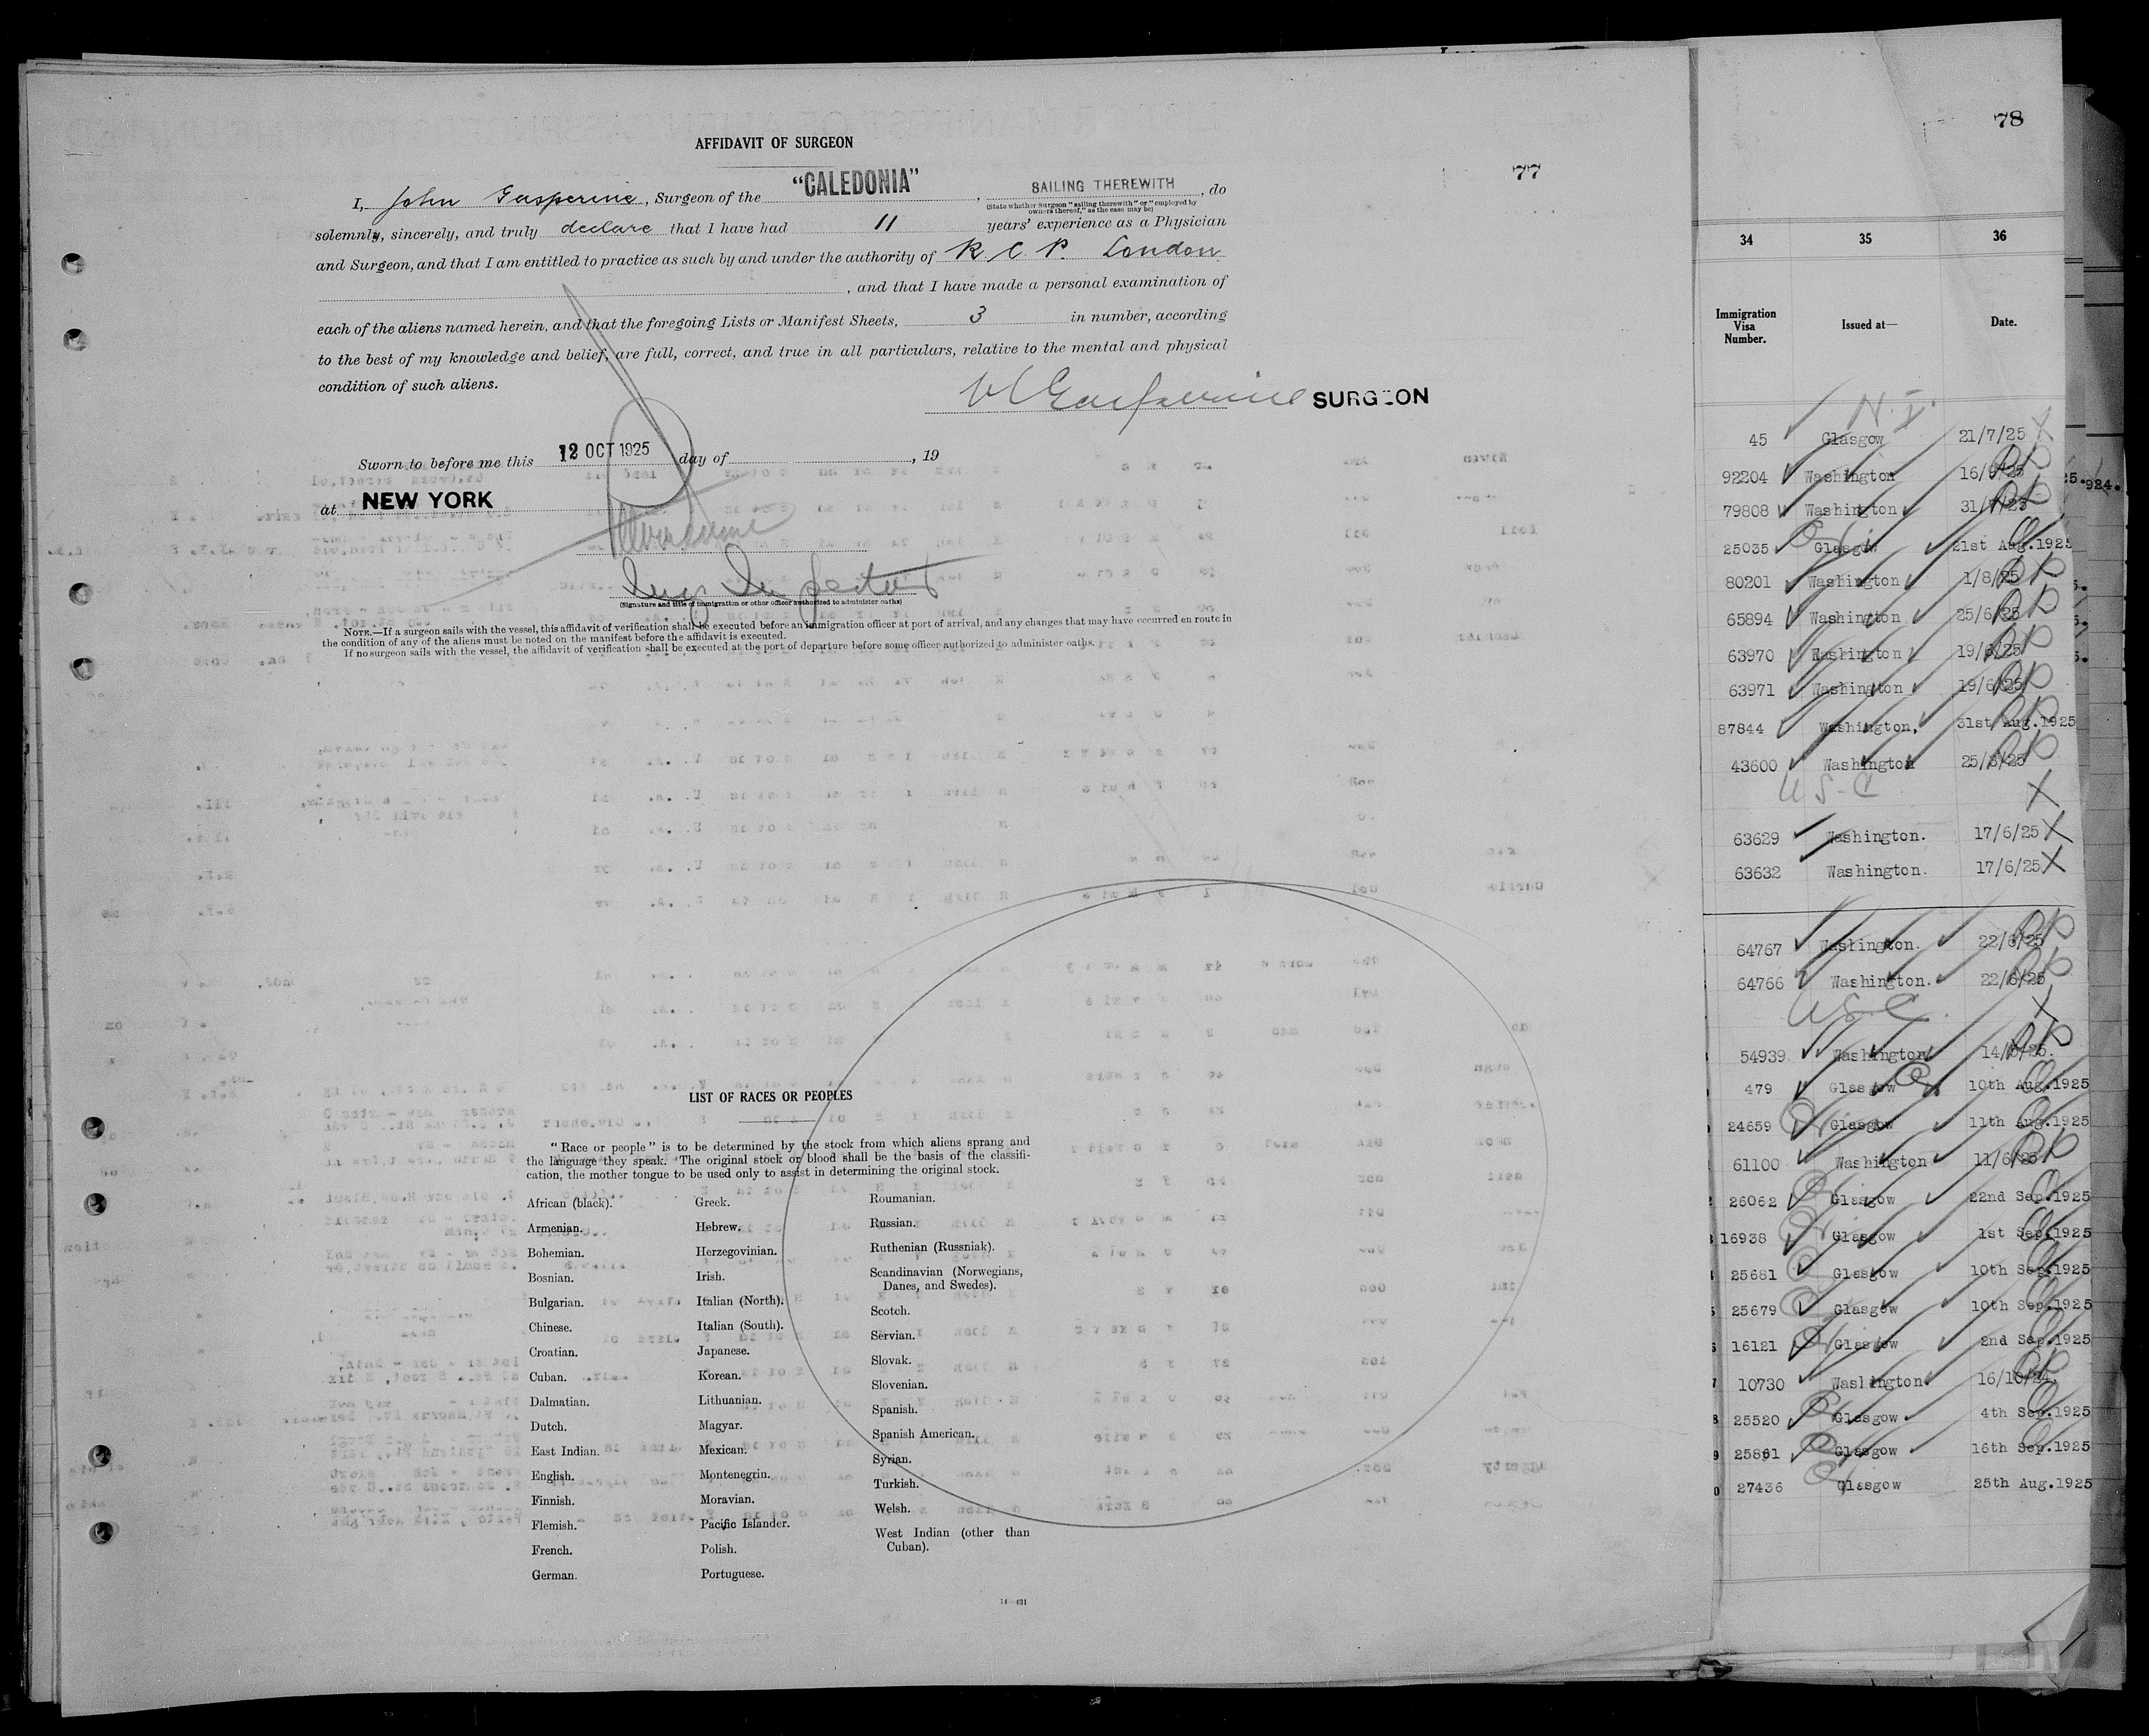 AFFIDAVIT OF SURGEON
77
I, John Gasperine, Surgeon of the "CALEDONIA", SAILING THEREWITH, do
(State whether Surgeon "sailing therewith" or "employed by owners thereof," as the case may be)
solemnly, sincerely, and truly declare that I have had 11 years' experience as a Physician
and Surgeon, and that I am entitled to practice as such by and under the authority of R. C. P. London
, and that I have made a personal examination of
each of the aliens named herein, and that the foregoing Lists or Manifest Sheets, 3 in number, according
to the best of my knowledge and belief, are full, correct, and true in all particulars, relative to the mental and physical
condition of such aliens.
SURGEON
Sworn to before me this 12 OCT 1925 day of , 19
at NEW YORK
Inspector
(Signature and title of immigration or other officer authorized to administer oaths)
NOTE.—If a surgeon sails with the vessel, this affidavit of verification shall be executed before an immigration officer at port of arrival, and any changes that may have occurred en route in
the condition of any of the aliens must be noted on the manifest before the affidavit is executed.
If no surgeon sails with the vessel, the affidavit of verification shall be executed at the port of departure before some officer authorized to administer oaths.
LIST OF RACES OR PEOPLES
"Race or people" is to be determined by the stock from which aliens sprang and
the language they speak. The original stock or blood shall be the basis of the classifi-
cation, the mother tongue to be used only to assist in determining the original stock.
African (black).
Armenian.
Bohemian.
Bosnian.
Bulgarian.
Chinese.
Croatian.
Cuban.
Dalmatian.
Dutch.
East Indian.
English.
Finnish.
Flemish.
French.
German.
Greek.
Hebrew.
Herzegovinian.
Irish.
Italian (North).
Italian (South).
Japanese.
Korean.
Lithuanian.
Magyar.
Mexican.
Montenegrin.
Moravian.
Pacific Islander.
Polish.
Portuguese.
Roumanian.
Russian.
Ruthenian (Russniak).
Scandinavian (Norwegians,
Danes, and Swedes).
Scotch.
Servian.
Slovak.
Slovenian.
Spanish.
Spanish American.
Syrian.
Turkish.
Welsh.
West Indian (other than
Cuban).
14—431
78
34 35 36
Immigration Visa Number. Issued at— Date.
45 Glasgow 21/7/25
92204 Washington 16/9/25
79808 Washington 31/7/25
25035 Glasgow 21st Aug.1925
80201 Washington 1/8/25
65894 Washington 25/6/25
63970 Washington 19/6/25
63971 Washington 19/6/25
87844 Washington, 31st Aug.1925
43600 Washington 25/3/25
U S. C
63629 Washington. 17/6/25
63632 Washington. 17/6/25
64767 Washington. 22/6/25
64766 Washington. 22/6/25
U.S.C.
54939 Washington 14/5/25.
479 Glasgow 10th Aug.1925
24659 Glasgow 11th Aug.1925
61100 Washington 11/6/25
26062 Glasgow 22nd Sep.1925
16938 Glasgow 1st Sep.1925
25681 Glasgow 10th Sep.1925
25679 Glasgow 10th Sep.1925
16121 Glasgow 2nd Sep.1925
10730 Washington. 16/10/24.
25520 Glasgow. 4th Sep.1925
25861 Glasgow 16th Sep.1925
27436 Glasgow 25th Aug.1925